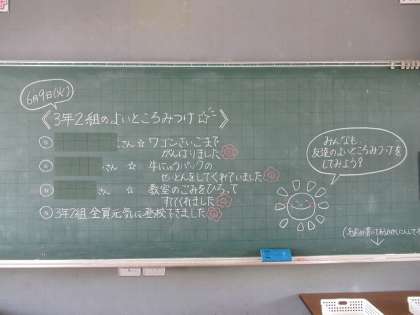 6月9日(火)
《3年2組のよいところみつけ☆》
さん ☆ ワゴンさいごまで
がんばりました
さん ☆ 牛にゅうパックの
せいとんをしてくれていました
さん ☆ 教室のごみをひろって
すててくれました
3年2組全員元気に登校できました
みんなも
友達のよいところみつけを
してみよう?